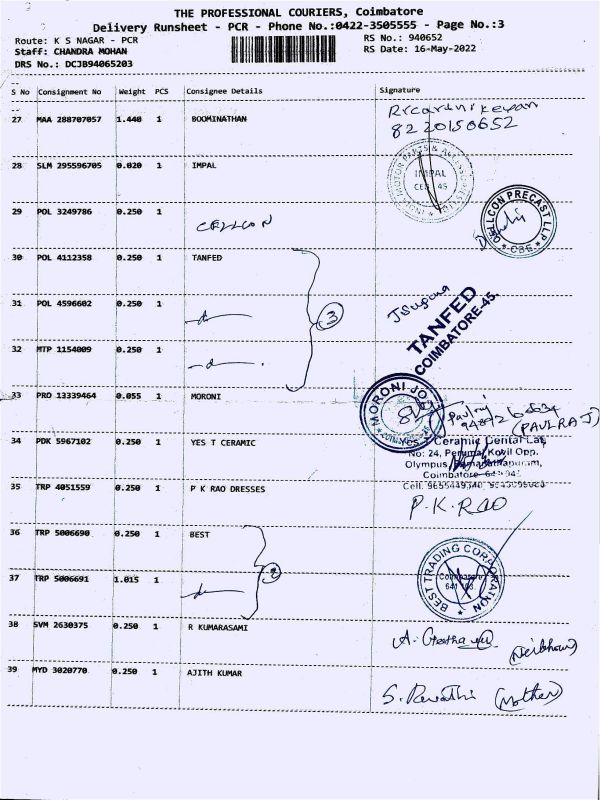 THE PROFESSIONAL COURIERS, Coimbatore
Delivery Runsheet - PCR - Phone No.:0422-3505555 - Page No.:3
Route: K S NAGAR - PCR
RS No.: 940652
Staff: CHANDRA MOHAN
RS Date: 16-May-2022
DRS No.: DCJB94065203
S No Consignment No Weight PCS Consignee Details Signature
27 MAA 288707057 1.440 1 BOOMINATHAN
8220150652
28 SLM 295596705 0.020 1 IMPAL
INDIA MOTOR PARTS & ACCESSORIES
IMPAL
CBE. 45
29 POL 3249786 0.250 1 CELLCON
CELLCON PRECAST LLP
CBE
30 POL 4112358 0.250 1 TANFED
31 POL 4596602 0.250 1
3
JSuguna
TANFED
COIMBATORE-45.
32 MTP 1154009 0.250 1
33 PRO 13339464 0.055 1 MORONI
MORONI
Paulraj
(PAULRAJ)
34 PDK 5967102 0.250 1 YES T CERAMIC
Yes T Ceramic Dental Lab
No: 24, Perumal Kovil Opp.
Olympus, Ramanathapuram,
Coimbatore
35 TRP 4051559 0.250 1 P K RAO DRESSES
P.K.RAO
36 TRP 5006690 0.250 1 BEST
37 TRP 5006691 1.015 1
2
BEST TRADING CORPORATION
Coimbatore
38 SVM 2630375 0.250 1 R KUMARASAMI
39 MYD 3020770 0.250 1 AJITH KUMAR
S. Revathi (Mother)